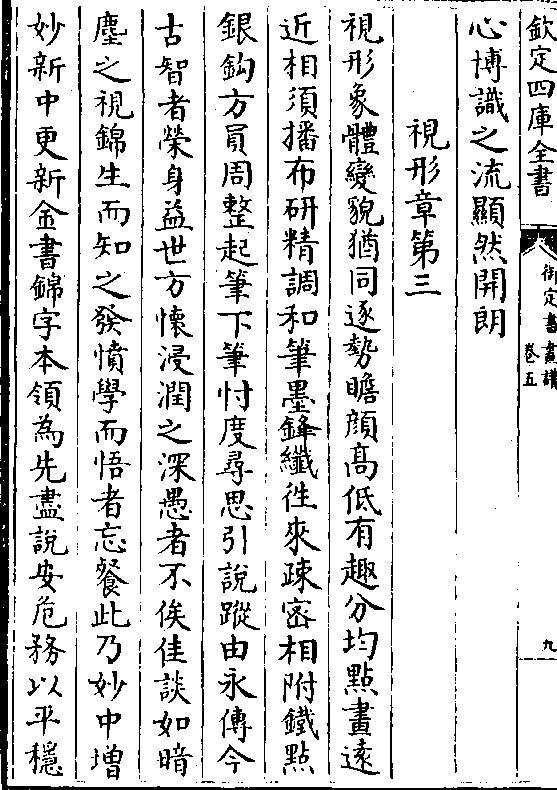 欽定四庫全書
御定書畫譜
卷五
九
心博識之流顯然開朗
視形章第三
視形象體變貌猶同逐勢瞻顔髙低有趣分均點畫逺
近相須播布研精調和筆墨鋒纖徃來疎宻相附鐵㸃
銀鈎方員周整起筆下筆忖度尋思引說蹤由永傳今
古智者榮身益世方懷浸潤之深愚者不俟佳談如暗
塵之視錦生而知之發憤學而悟者忘餐此乃妙中增
妙新中更新金書錦字本領為先盡說安危務以平穩